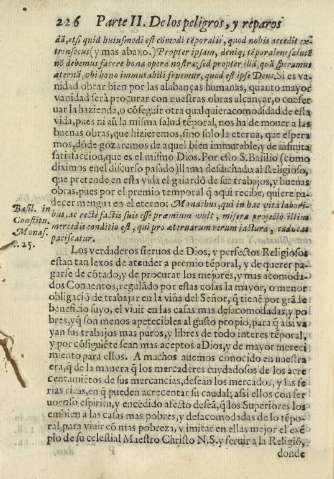 226 Parte II. De los peligros, y reparos
dã, etsi quid huiusmodi est cõmodi tẽporalis, quod nobis accedit ex-
trinsecus (y mas abaxo.) Propter ipsam, deniq; tẽporalem salutẽ
nõ debemus facere bona opera nostra, sed propter illã, quã speramus
æternã, vbi bono immutabili fruemur, quod est ipse Deus. Si es va-
nidad obrar bien por las alabanças humanas, quanto mayor
vanidad serà procurar con nuestras obras alcançar, o conser-
uar la hazienda, o cõseguir otra qualquiera comodidad de esta
vida, pues ni aũ la misma salud tẽporal, nos ha de mouer a las
buenas obras, que hizieremos, sino solo la eterna, que espera-
mos, dõde gozaremos de aquel bien immutable, y de infinita
satisfaccion, que es el mismo Dios. Por esto S. Basilio (como
diximos en el discurso passado) llama desdichado al Religioso,
que pretende en esta vida el guiardõ de sus trabajos, y buenas
obras, pues por el premio temporal q̃ aqui recibe, quiere pa-
decer mengua en el eterno: Monachus, qui in hac vita labori-
bus, ac rectè factis suis esse præmium volt, misera profectò illius
mercedis conditio est, qui pro æternarum rerum iactura, caducas
paciscatur.
Basil. in
Constitu.
Monas.
c. 25.
Los verdaderos sieruos de Dios, y perfectos Religiosos
estan tan lexos de atender a premio tẽporal, y de querer pa-
garse de cõtado, y de procurar los mejores, y mas acomoda-
dos Conuentos, regulãdo por estas cosas la mayor, o menor
obligaciõ de trabajar en la viña del Señor, q̃ tiene por grã be-
neficio suyo, el viuir en las casas mas desacomodadas, y po-
bres, y q̃ son menos apetecibles al gusto propio, para q̃ assi va-
yan sus trabajos mas puros, y libres de todo interes tẽporal,
y por cõsiguiẽte sean mas aceptos a Dios, y de mayor mereci-
miento para ellos. A muchos auemos conocido en nuestra
era, q̃ de la manera q̃ los mercaderes cuydadosos de los acre-
centamiẽtos de sus mercancias, desean los mercados, y las fe-
rias ricas, en q̃ pueden acrecentar su caudal; assi ellos con fer-
uoroso espiritu, y encẽdido afecto deseã, q̃ los Superiores los
embien a las casas mas pobres, y desacomodadas de lo tẽpo-
ral, para viuir cõ mas pobreza, y imitar en ellas mejor el exẽ-
plo de su celestial Maestro Christo N.S. y seruir a la Religiõ,
donde